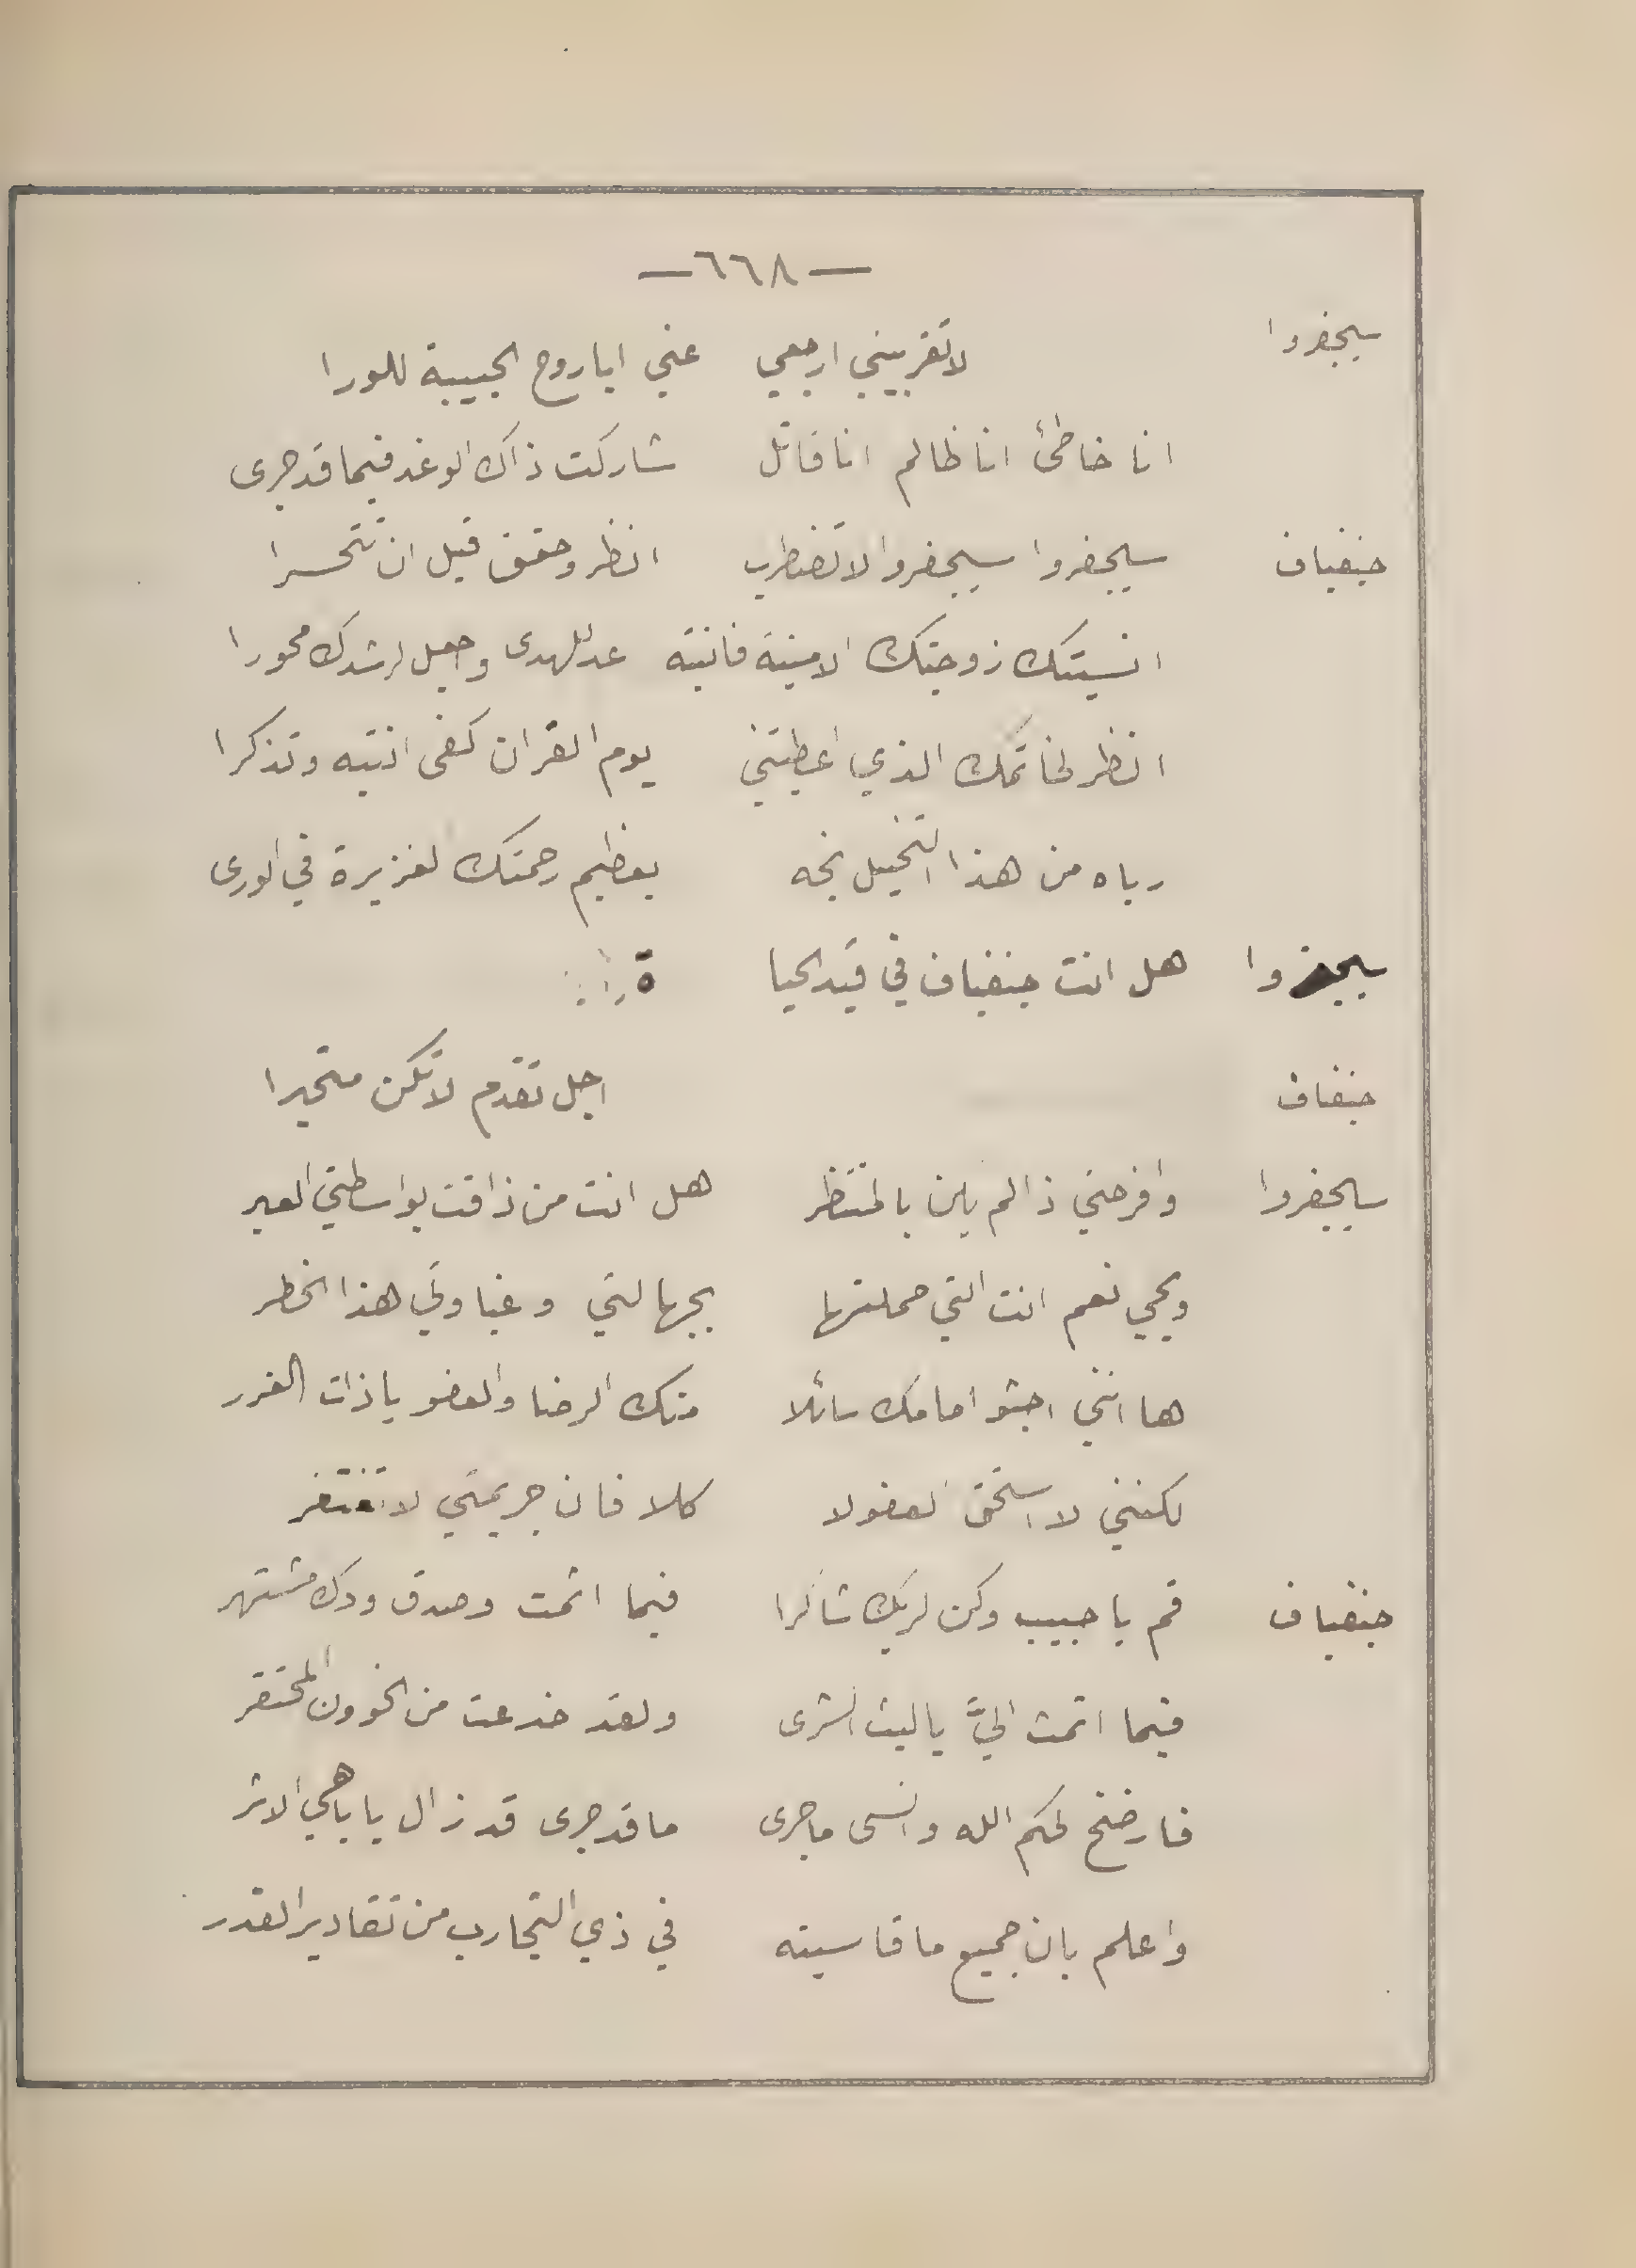 —٦٦٨—
سيجفروا لا تقربيني ارجعي عني ايا روح الحبيبة للورا
انا خاطئ انا ظالم انا قاتل شاركت ذاك الوغد فيما قد جرى
جنفياف سيجفروا سيجفروا لا تضطرب انظر وحقق قبل ان تتحسرا
انسيتك زوجتك الامينة فانتبه عد للهدى واجعل لرشدك محورا
انظر لخاتمك الذي اعطيتني يوم القران كفى انتبه وتذكرا
رباه من هذا التخيل نجه بعظيم رحمتك لغزيرة في الورى
سيجفروا هل انت جنفياف في قيد الحيا ة
جنفياف اجل تقدم لا تكن متحيرا
سيجفروا وافرحتي ذا لم يلن بالمنتظر هل انت من ذاقت بواسطتي العبر
ويحي نعم انت التي حملتها بجهالتي وغباوتي هذا الخطر
ها انني اجثو امامك سائلا منك الرضا والعفو يا ذات الغرر
لكنني لا استحق لعفو لا كلا فان جريمتي لا تغتفر
جنفياف قم يا حبيب وكن لربك شاكرا فيما اتمت وصدق ودك مشتهر
فيما اتمت اليَّ يا ليث الشرى ولقد خدعت من الخوون المحتقر
فارضخ لحكم الله وانسى ما جرى ما قد جرى قد زال يا باهي الاثر
واعلم بان جميع ما قاسيته في ذي التجارب من تقادير القدر